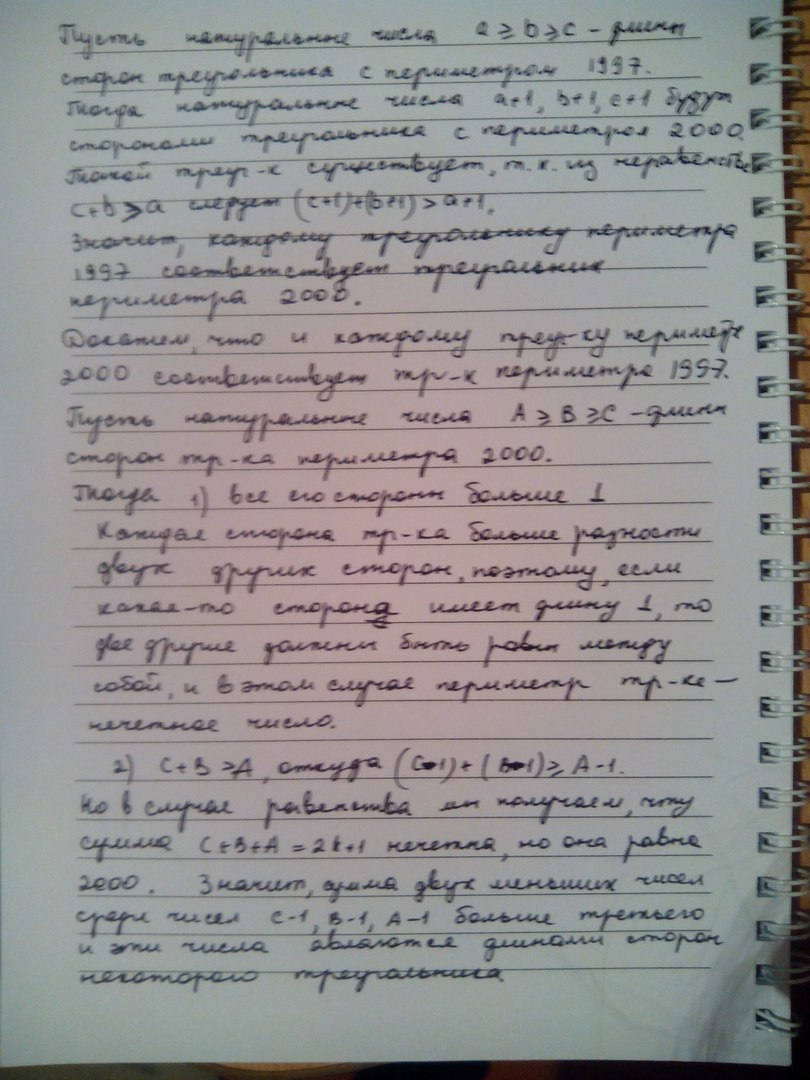 Пусть натуральные числа a ≥ b ≥ c – длины
сторон треугольника с периметром 1997.
Тогда натуральные числа a+1, b+1, c+1 будут
сторонами треугольника с периметром 2000.
Такой треуг-к существует, т.к. из неравенства
c+b > a следует (c+1)+(b+1) > a+1.
Значит, каждому треугольнику периметра
1997 соответствует треугольник
периметра 2000.
Докажем, что и каждому треуг-ку периметра
2000 соответствует тр-к периметра 1997.
Пусть натуральные числа A ≥ B ≥ C – длины
сторон тр-ка периметра 2000.
Тогда 1) все его стороны больше 1
Каждая сторона тр-ка больше разности
двух других сторон, поэтому, если
какая-то сторона имеет длину 1, то
две другие должны быть равны между
собой, и в этом случае периметр тр-ка –
нечетное число.
2) C+B > A, откуда (C-1)+(B-1) ≥ A-1.
Но в случае равенства мы получаем, что
сумма C+B+A = 2k+1 нечетна, но она равна
2000. Значит, сумма двух меньших чисел
среди чисел C-1, B-1, A-1 больше третьего
и эти числа являются длинами сторон
некоторого треугольника.